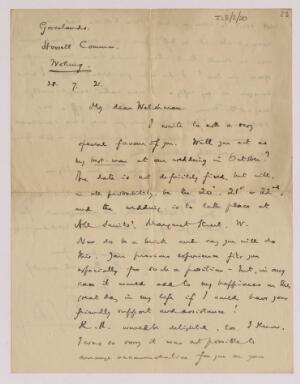 TS 8/2/20
22
Horsell Common
Woking.
28. 7. 21.
My dear Welchman
I write to ask a very
special favour of you. Will you act as
my best-man at our wedding in October?
The date is not definitely fixed, but will,
in all probability, be the 20th, 21st or 22nd,
and the wedding is to take place at
All Saints', Margaret Street, W.
Now do be a brick and say you will do
this. Your previous experience fits you
especially for such a position - but, in any
case it would add to my happiness on the
great day in my life if I could have your
friendly support and assistance!
would be delighted, too, I know.
I was so sorry it was not possible to
arrange accommodation for you on your